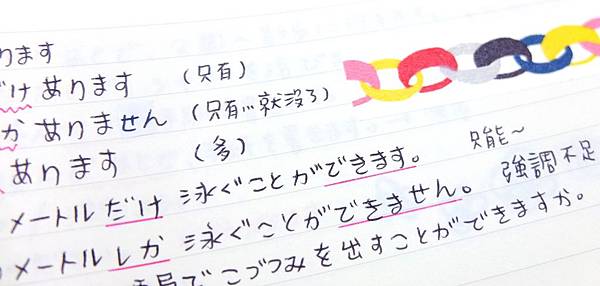 ります
だけ あります (只有)
か ありません (只有…就沒了)
あります (多)
メートル だけ 泳ぐことができます。 只能～
メートル しか 泳ぐことができません。 強調不足
局でこづつみを出すことができますか。